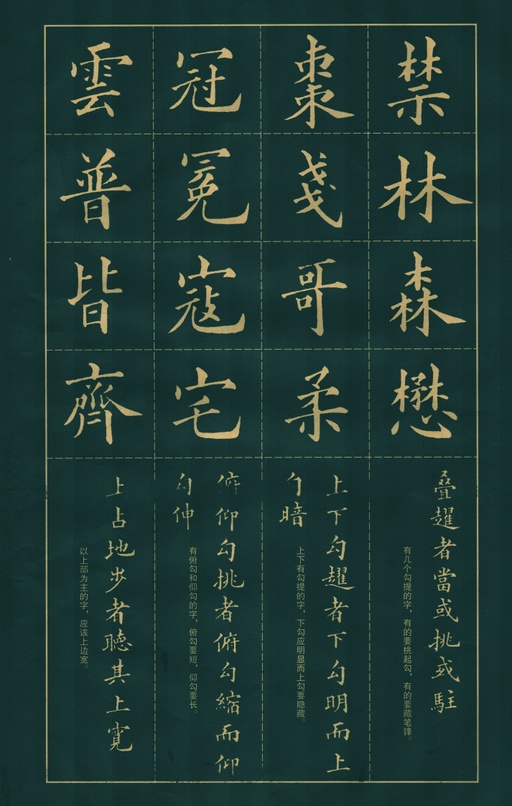 禁林森懋
叠趯者當或挑或駐
有几个勾提的字，有的要挑起勾，有的要藏笔锋。
棗戔哥柔
上下勾趯者下勾明而上
勾暗
上下有勾提的字，下勾应明显而上勾要隐藏。
冠冕寇宅
俯仰勾挑者俯勾縮而仰
勾伸
有俯勾和仰勾的字，俯勾要短，仰勾要长。
雲普皆齊
上占地步者聽其上寬
以上部为主的字，应该上边宽。